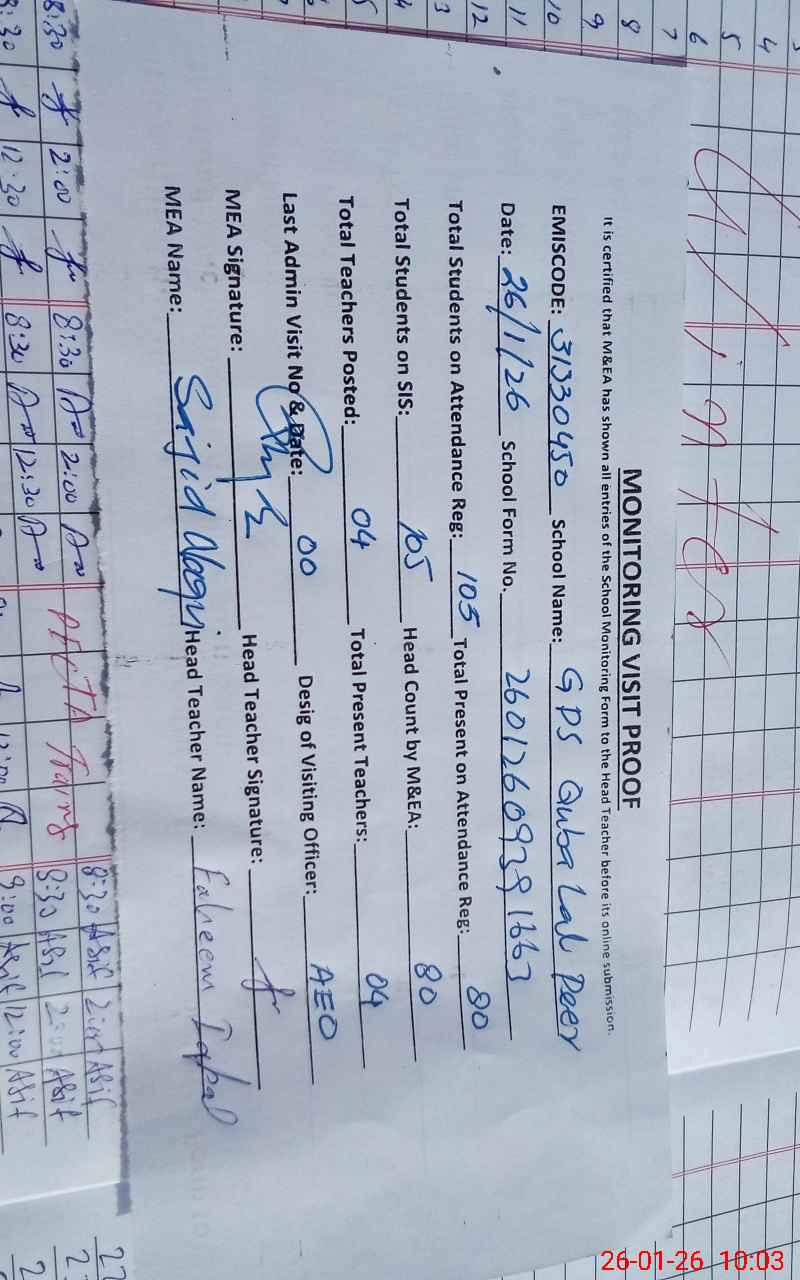 Winter
MONITORING VISIT PROOF
It is certified that M&EA has shown all entries of the School Monitoring Form to the Head Teacher before its online submission.
EMISCODE: 31330450 School Name: GPS Quba Lal Peer
Date: 26/1/26 School Form No. 26012609391663
Total Students on Attendance Reg: 105 Total Present on Attendance Reg: 80
Total Students on SIS: 105 Head Count by M&EA: 80
Total Teachers Posted: 04 Total Present Teachers: 04
Last Admin Visit No & Date: 00 Desig of Visiting Officer: AEO
MEA Signature: Head Teacher Signature:
MEA Name: Sajid Naqvi Head Teacher Name: Faheem Iqbal
3
4
5
6
7
8
9
10
11
12
3
4
5
8:30 Asif 2:00 Asif
8:30 2:00 8:30 2:00 PECTA 8:30 Asif 2:00 Asif
8:30 12:30 8:30 12:30 12:00 9:00 Asif 12:00 Asif
26-01-26 10:03